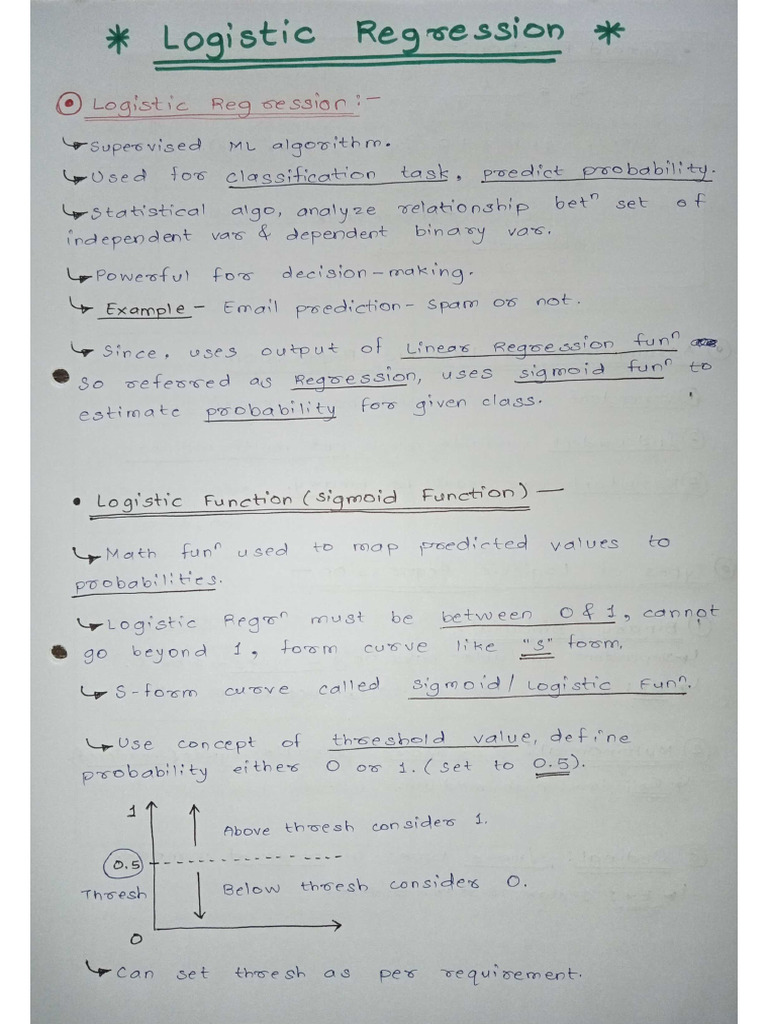 * Logistic Regression *
Logistic Regression:-
↳ Supervised ML algorithm.
↳ Used for classification task, predict probability.
↳ Statistical algo, analyze relationship betⁿ set of
independent var & dependent binary var.
↳ Powerful for decision-making.
↳ Example - Email prediction - spam or not.
↳ Since, uses output of Linear Regression funⁿ
so referred as Regression, uses sigmoid funⁿ to
estimate probability for given class.
• Logistic Function (Sigmoid Function) —
↳ Math funⁿ used to map predicted values to
probabilities.
↳ Logistic Regrⁿ must be between 0 & 1, cannot
go beyond 1, form curve like "S" form.
↳ S-form curve called Sigmoid/Logistic Funⁿ.
↳ Use concept of threshold value, define
probability either 0 or 1. (set to 0.5).
1
Above thresh consider 1.
0.5
Thresh
Below thresh consider 0.
0
↳ Can set thresh as per requirement.